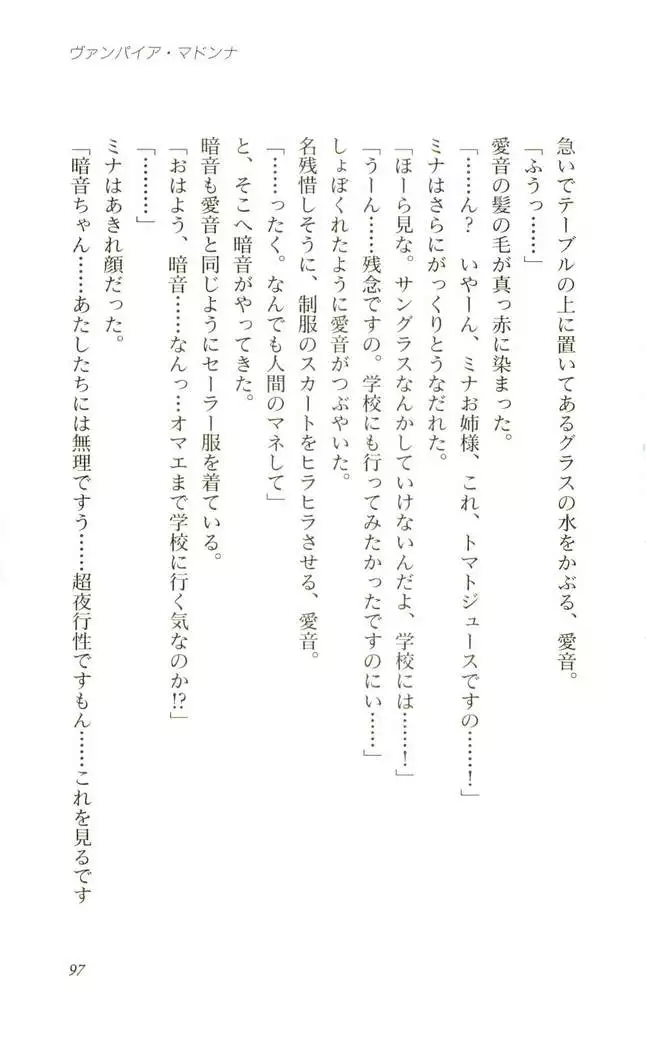 ヴァンパイア・マドンナ
急いでテーブルの上に置いてあるグラスの水をかぶる、愛音。
「ふうっ……」
愛音の髪の毛が真っ赤に染まった。
「……ん？　いやーん、ミナお姉様、これ、トマトジュースですの……！」
ミナはさらにがっくりとうなだれた。
「ほーら見な。サングラスなんかしていけないんだよ、学校には……！」
「うーん……残念ですの。学校にも行ってみたかったですのにい……」
しょぼくれたように愛音がつぶやいた。
名残惜しそうに、制服のスカートをヒラヒラさせる、愛音。
「……ったく。なんでも人間のマネして」
と、そこへ暗音がやってきた。
暗音も愛音と同じようにセーラー服を着ている。
「おはよう、暗音……なんっ…オマエまで学校に行く気なのか!?」
「………」
ミナはあきれ顔だった。
「暗音ちゃん……あたしたちには無理ですう……超夜行性ですもん……これを見るです
97